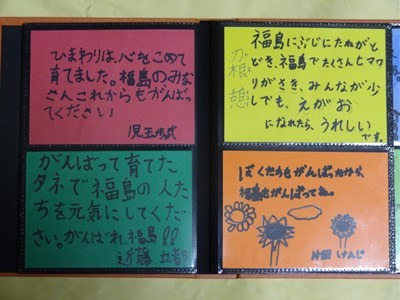 ひまわりは、心をこめて
育てました。福島のみな
さんこれからもがんばっ
てください
児玉
福島にぶじにたねがと
どき、福島でたくさんヒマワ
リがさき、みんなが少
しでも、えがお
になれたら、うれしい
です。
がんばって育てた
タネで福島の人た
ちを元気にしてくだ
さい。がんばれ、福島!!
近藤
ぼくたちもがんばったから、
福島もがんばってね。
けんじ